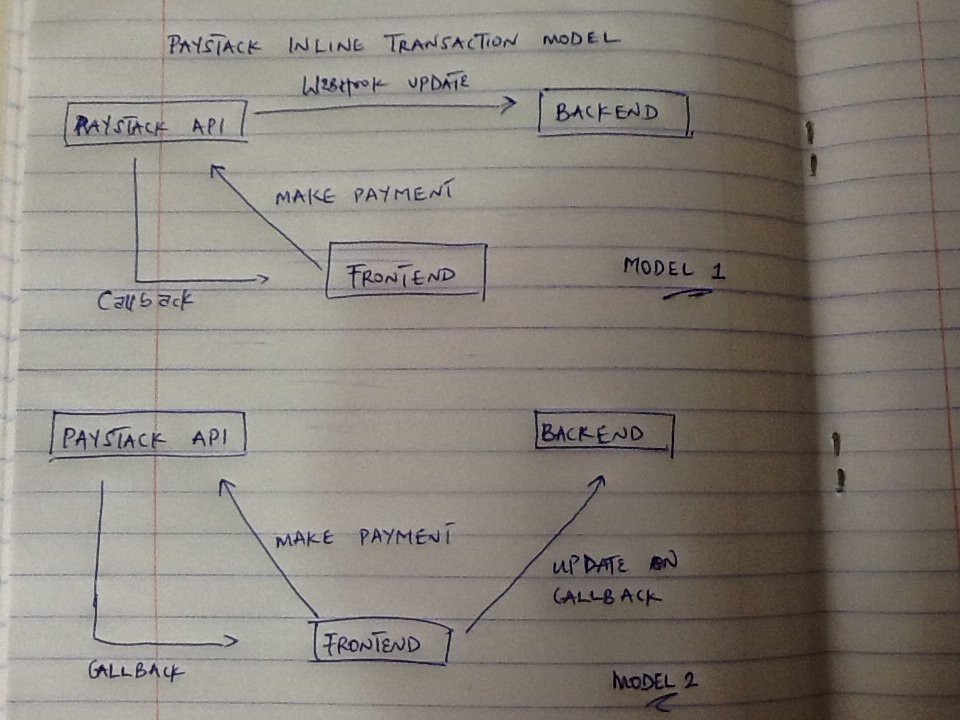 PAYSTACK INLINE TRANSACTION MODEL
WEBHOOK UPDATE
PAYSTACK API
BACKEND
MAKE PAYMENT
FRONTEND
MODEL 1
Callback
PAYSTACK API
BACKEND
MAKE PAYMENT
UPDATE ON
CALLBACK
FRONTEND
CALLBACK
MODEL 2